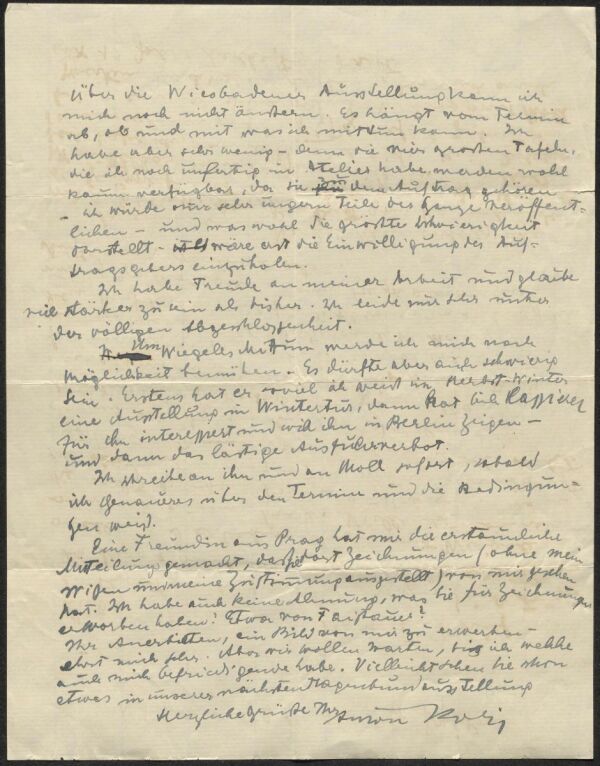 über die Wiesbadener Ausstellung kann ich
mich noch nicht äußern. Es hängt vom Termin
ab, ob und mit was ich mittun kann. Ich
habe aber sehr wenig – denn die vier grossen Tafeln,
die ich noch unfertig im Atelier habe werden wohl
kaum verfügbar, da sie zu dem Auftrag gehören
– ich würde nur sehr ungern Teile des Ganze veröffent-
lichen – und was wohl die grösste Schwierigkeit
darstellt – wäre erst die Einwilligung des Auf-
traggebers einzuholen.
Ich habe Freude an meiner Arbeit und glaube
viel stärker zu sein als bisher. Ich leide nur sehr unter
der völligen Abgeschlossenheit.
Um Wiegeles Mittun werde ich mich nach
Möglichkeit bemühen. Es dürfte aber auch schwierig
sein. Erstens hat er soviel ich weiss im Herbst-Winter
eine Ausstellung in Wintertur, dann hat sich Kassirer
für ihn interessiert und will ihn in Berlin zeigen –
und dann das lästige Ausfuhrverbot.
Ich schreibe an ihn und an Moll sofort, sobald
ich genaueres über den Termine und die Bedingun-
gen weiss.
Eine Freundin aus Prag hat mir die erstaunliche
Mitteilung gemacht, dass sie dort Zeichnungen (ohne mein
Wissen und meine Zustimmung ausgestellt) von mir gesehen
hat. Ich habe auch keine Ahnung, was Sie für Zeichnungen
erworben haben? Etwa von Faistauer?
Ihr Anerbieten, ein Bild von mir zu erwerben –
ehrt mich sehr. Aber wir wollen warten, bis ich welche
auch mich befriedigende habe. Vielleicht sehen Sie schon
etwas in unserer nächsten Hagenbundausstellung
Herzliche Grüße Ihr Anton Kolig